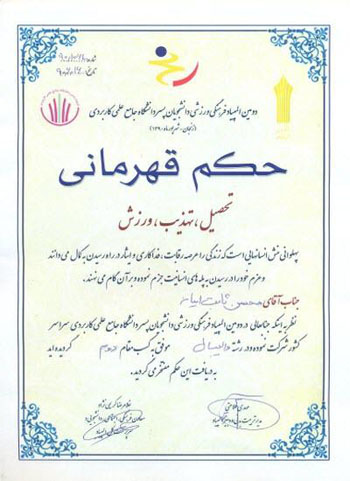 دومین المپیاد فرهنگی ورزشی دانشجویان پسر دانشگاه جامع علمی کاربردی
(زنجان - شهریور ماه ۱۳۹۰)
حکم قهرمانی
تحصیل ، تهذیب ، ورزش
پهلوانی منش انسانهایی است که زندگی را عرصه رقابت ، فداکاری و ایثار در راه رسیدن به کمال می دانند
و عزم خود را در رسیدن به پله های انسانیت جزم نموده و بر آن گام می نهند .
جناب آقای محسن
نظر به اینکه جنابعالی در دومین المپیاد فرهنگی ورزشی دانشجویان پسر دانشگاه جامع علمی کاربردی سراسر
کشور شرکت نموده و در رشته والیبال موفق به کسب مقام دوم گردیده اید
به دریافت این حکم مفتخر می گردید .
غلامرضا کریمی نژاد